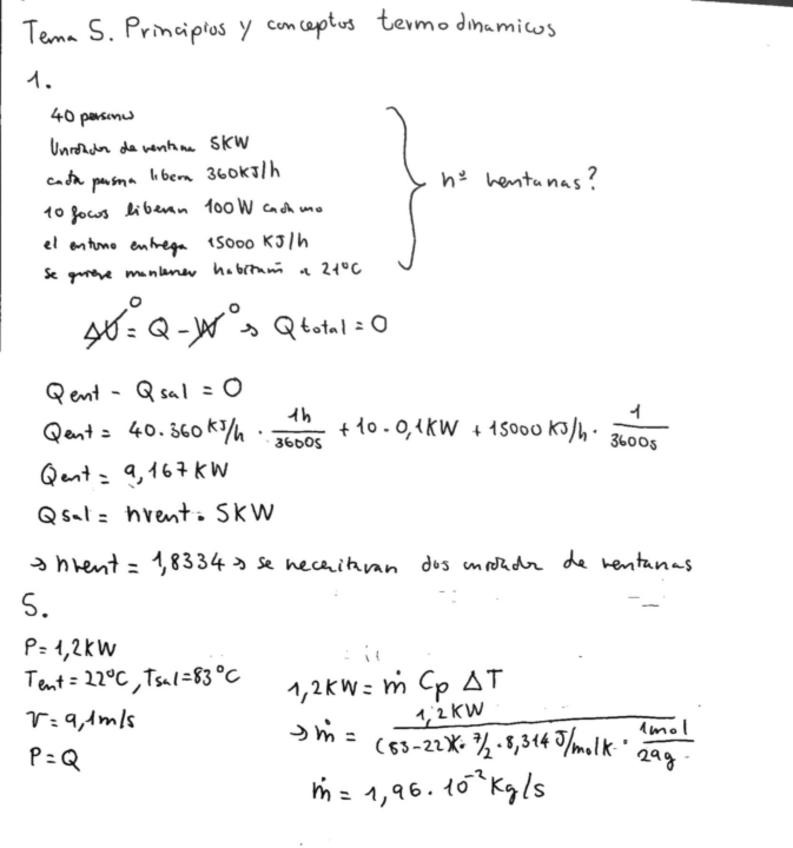 Tema 5. Principios y conceptos termodinamicos
1.
40 personas
Unidador de ventana 5KW
cada persona libera 360KJ/h
10 focos liberan 100W cada uno
el entorno entrega 15000 KJ/h
Se quiere mantener habitacion a 21ºC
nº ventanas?
ΔU = Q - W → Qtotal = 0
0 0
Qent - Qsal = 0
Qent = 40·360 KJ/h · 1h/3600s + 10·0,1KW + 15000 KJ/h · 1/3600s
Qent = 9,167 KW
Qsal = nvent · 5KW
→ nvent = 1,8334 → se necesitaran dos de ventanas
5.
P = 1,2KW
Tent = 22ºC, Tsal = 83ºC
V = 9,1m/s
P = Q
1,2KW = ṁ Cp ΔT
→ ṁ = 1,2KW / (83-22)K · 7/2 · 8,314 J/molK · 1mol/29g
ṁ = 1,96·10⁻² Kg/s